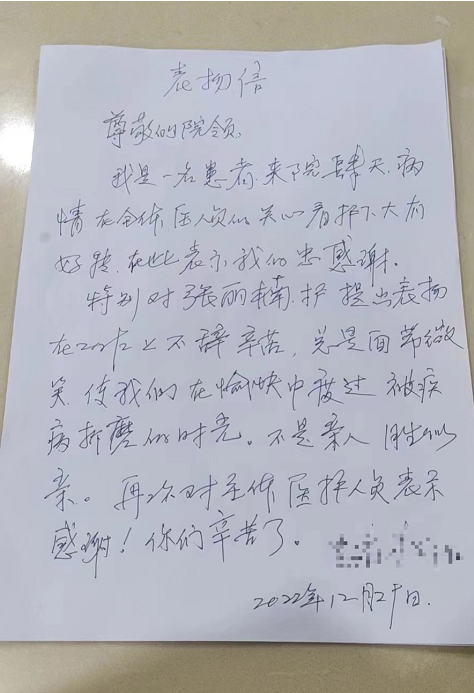 表扬信
尊敬的院领
我是一名患者,来院肆天,病
情在全体医人员的关心看护下大有
好转,在此表示我的忠感谢。
特别对张丽楠护提出表扬
在工作上不辞辛苦,总是面带微
笑使我们在愉快中度过被疾
病折磨的时光。不是亲人胜似
亲。再次对全体医护人员表示
感谢!你们辛苦了。
2022年12月29日.